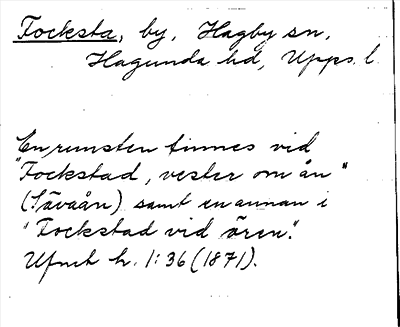 Focksta, by, Hagby sn,
Hagunda hd, Upps. l.
En runsten finnes vid
"Fockstad, vester om ån"
(Sävaån) samt en annan i
"Fockstad vid ören."
Ufmt h. 1:36 (1871).